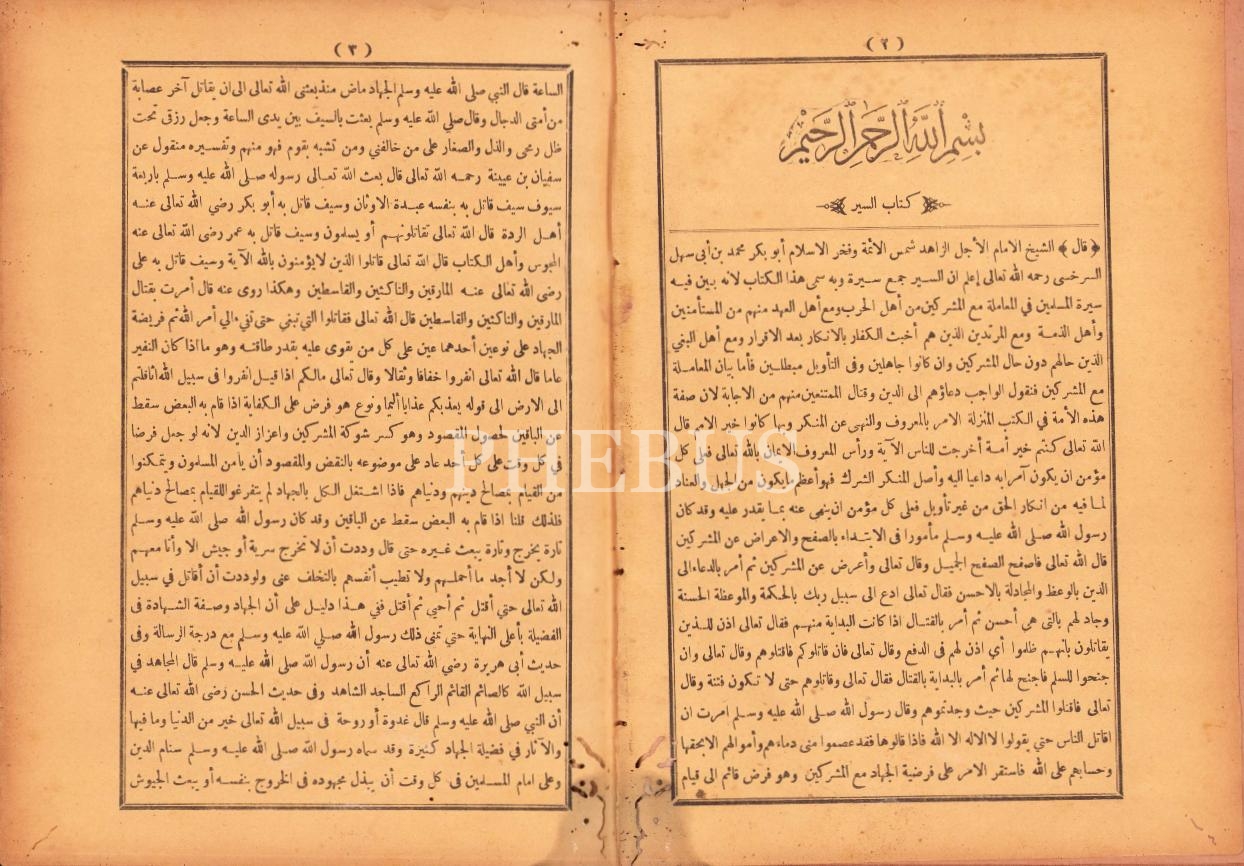 (٢)
بسم الله الرحمن الرحيم
كتاب السير
﴿ قال ﴾ الشيخ الامام الأجل الزاهد شمس الائمة وفخر الاسلام أبو بكر محمد بن أبى سهل
السرخسى رحمه الله تعالى إعلم ان السير جمع سيرة وبه سمى هذا الكتاب لانه يبين فيه
سيرة المسلمين في المعاملة مع المشركين من أهل الحرب ومع أهل العهد منهم من المستأمنين
وأهل الذمة ومع المرتدين الذين هم أخبث الكفار بالانكار بعد الاقرار ومع أهل البغي
الذين حالهم دون حال المشركين وان كانوا جاهلين وفى التأويل مبطلين فأما بيان المعاملة
مع المشركين فنقول الواجب دعاؤهم الى الدين وقتال الممتنعين منهم من الاجابة لان صفة
هذه الأمة في الكتب المنزلة الامر بالمعروف والنهى عن المنكر وبها كانوا خير الامم قال
الله تعالى كنتم خير أمة أخرجت للناس الآية ورأس المعروف الايمان بالله تعالى فعلى كل
مؤمن ان يكون آمرا به داعيا اليه وأصل المنكر الشرك فهو أعظم ما يكون من الجهل والعناد
لما فيه من انكار الحق من غير تأويل فعلى كل مؤمن ان ينهى عنه بما يقدر عليه وقد كان
رسول الله صلى الله عليه وسلم مأمورا فى الابتداء بالصفح والاعراض عن المشركين
قال الله تعالى فاصفح الصفح الجميل وقال تعالى وأعرض عن المشركين ثم أمر بالدعاء الى
الدين بالوعظ والمجادلة بالاحسن فقال تعالى ادع الى سبيل ربك بالحكمة والموعظة الحسنة
وجاد لهم بالتى هى أحسن ثم أمر بالقتال اذا كانت البداية منهم فقال تعالى اذن للذين
يقاتلون بأنهم ظلموا أي اذن لهم فى الدفع وقال تعالى فان قاتلوكم فاقتلوهم وقال تعالى وان
جنحوا للسلم فاجنح لها ثم أمر بالبداية بالقتال فقال تعالى وقاتلوهم حتى لا تكون فتنة وقال
تعالى فاقتلوا المشركين حيث وجدتموهم وقال رسول الله صلى الله عليه وسلم امرت ان
اقاتل الناس حتي يقولوا لا اله الا الله فاذا قالوها فقد عصموا منى دماءهم وأموالهم الا بحقها
وحسابهم على الله فاستقر الامر على فرضية الجهاد مع المشركين وهو فرض قائم الى قيام
(٣)
الساعة قال النبي صلى الله عليه وسلم الجهاد ماض منذ بعثنى الله تعالى الى ان يقاتل آخر عصابة
من أمتى الدجال وقال صلى الله عليه وسلم بعثت بالسيف بين يدى الساعة وجعل رزقى تحت
ظل رمحى والذل والصغار على من خالفني ومن تشبه بقوم فهو منهم وتفسيره منقول عن
سفيان بن عيينة رحمه الله تعالى قال بعث الله تعالى رسوله صلى الله عليه وسلم باربعة
سيوف سيف قاتل به بنفسه عبدة الاوثان وسيف قاتل به أبو بكر رضي الله تعالى عنه
أهل الردة قال الله تعالى تقاتلونهم أو يسلمون وسيف قاتل به عمر رضى الله تعالى عنه
المجوس وأهل الكتاب قال الله تعالى قاتلوا الذين لا يؤمنون بالله الآية وسيف قاتل به على
رضى الله تعالى عنه المارقين والناكثين والقاسطين وهكذا روى عنه قال أمرت بقتال
المارقين والناكثين والقاسطين قال الله تعالى فقاتلوا التي تبغي حتى تفيء الي أمر الله ثم فريضة
الجهاد على نوعين أحدهما عين على كل من يقوى عليه بقدر طاقته وهو ما اذا كان النفير
عاما قال الله تعالى انفروا خفافا وثقالا وقال تعالى مالكم اذا قيل انفروا فى سبيل الله اثاقلتم
الى الارض الى قوله يعذبكم عذابا أليما ونوع هو فرض على الكفاية اذا قام به البعض سقط
عن الباقين لحصول المقصود وهو كسر شوكة المشركين واعزاز الدين لانه لو جعل فرضا
في كل وقت على كل أحد عاد على موضوعه بالنقض والمقصود أن يأمن المسلمون ويتمكنوا
من القيام بمصالح دينهم ودنياهم فاذا اشتغل الكل بالجهاد لم يتفرغوا للقيام بمصالح دنياهم
فلذلك قلنا اذا قام به البعض سقط عن الباقين وقد كان رسول الله صلى الله عليه وسلم
تارة يخرج وتارة يبعث غيره حتى قال وددت أن لا تخرج سرية أو جيش الا وأنا معهم
ولكن لا أجد ما أحملهم ولا تطيب أنفسهم بالتخلف عنى ولوددت أن أقاتل في سبيل
الله تعالى حتي أقتل ثم أحيي ثم أقتل ففي هذا دليل على أن الجهاد وصفة الشهادة فى
الفضيلة بأعلى النهاية حتي تمنى ذلك رسول الله صلي الله عليه وسلم مع درجة الرسالة وفى
حديث أبى هريرة رضي الله تعالى عنه أن رسول الله صلى الله عليه وسلم قال المجاهد في
سبيل الله كالصائم القائم الراكع الساجد الشاهد وفى حديث الحسن رضى الله تعالى عنه
أن النبي صلى الله عليه وسلم قال غدوة أو روحة فى سبيل الله تعالى خير من الدنيا وما فيها
والآثار في فضيلة الجهاد كثيرة وقد سماه رسول الله صلى الله عليه وسلم سنام الدين
وعلى امام المسلمين فى كل وقت أن يبذل مجهوده فى الخروج بنفسه أو يبعث الجيوش
PHEBUS